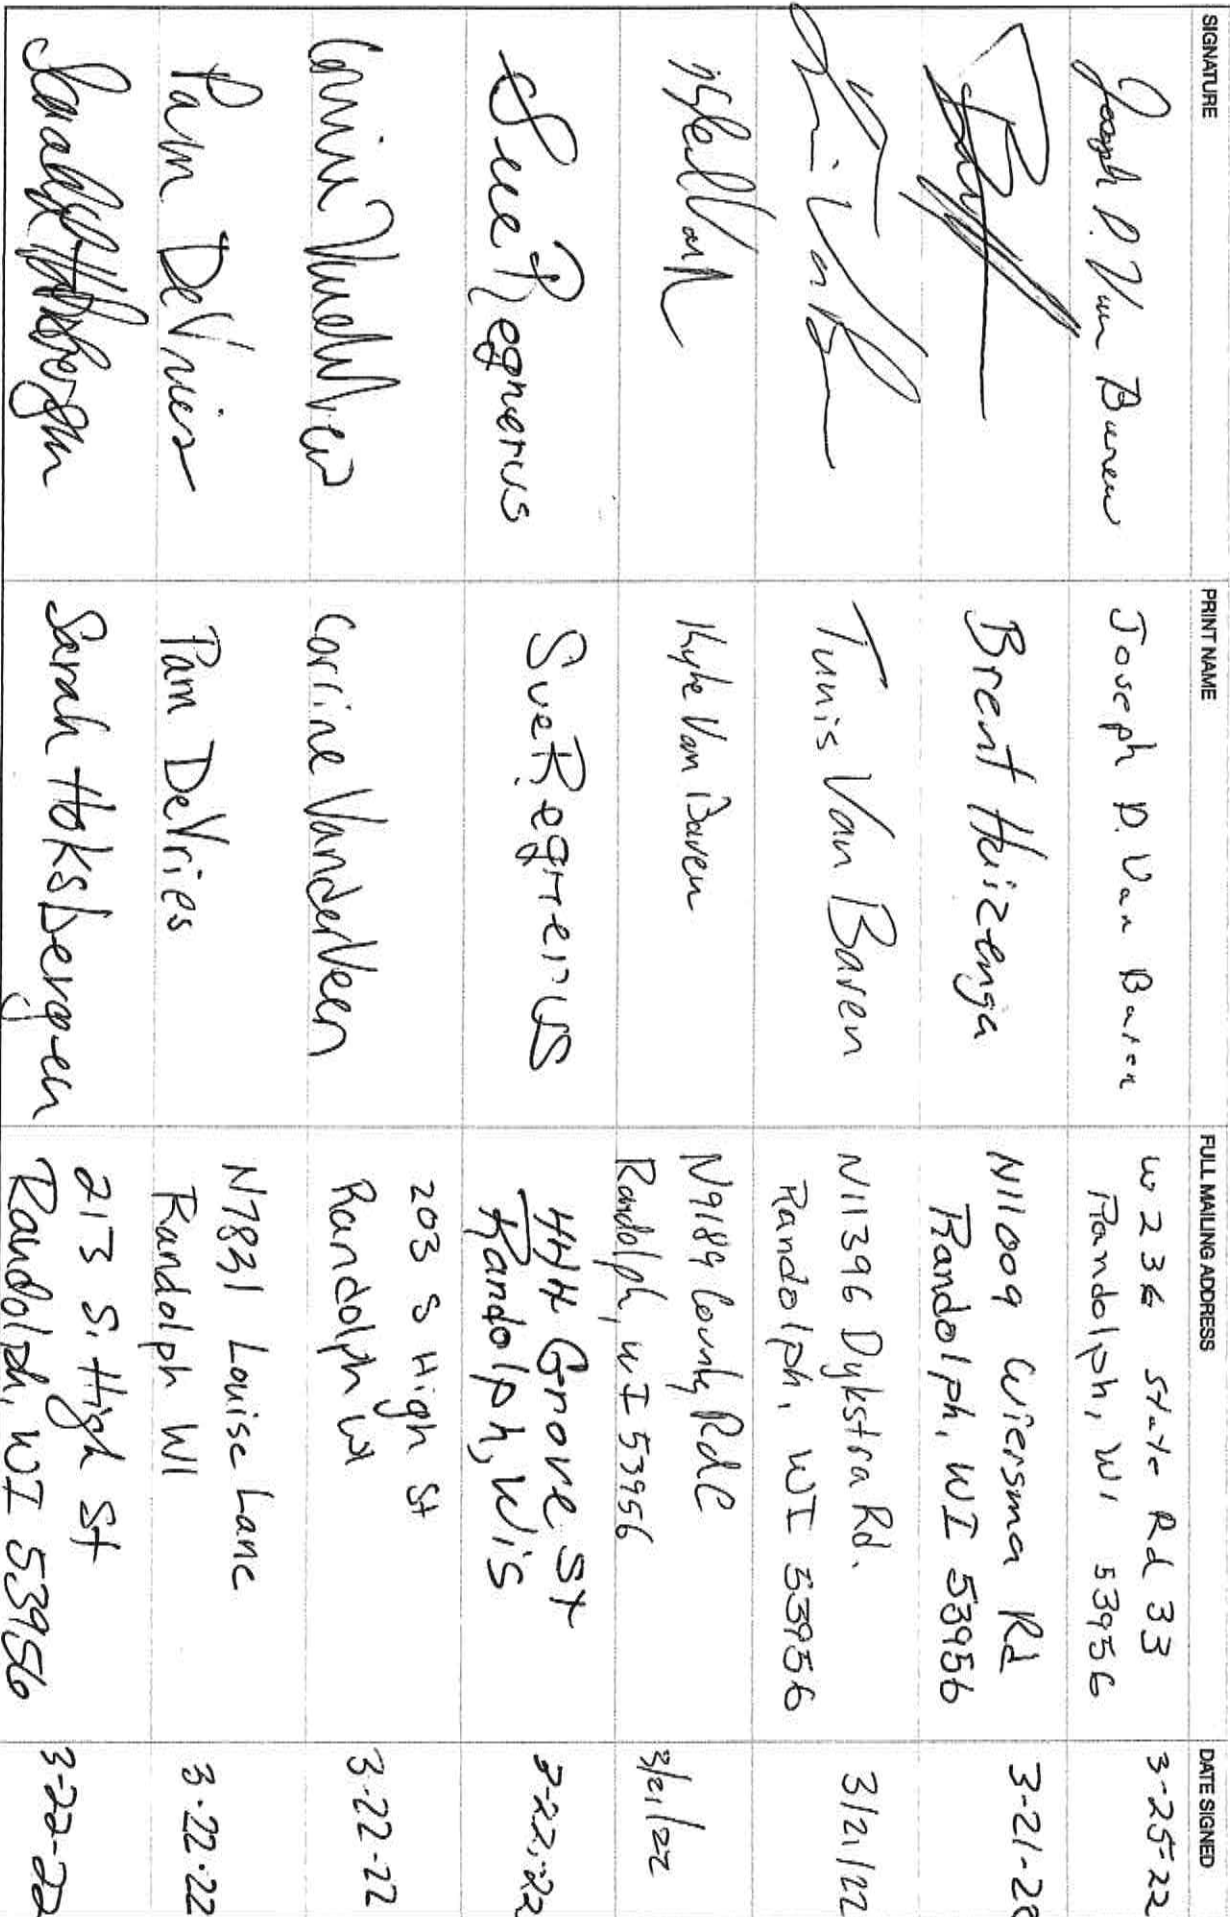 SIGNATURE PRINT NAME FULL MAILING ADDRESS DATE SIGNED
Joseph P. Van Buren Joseph P. Van Buren W236 State Rd 33 3-25-22
Randolph, WI 53956
Brent Huizenga N11009 Wiersma Rd 3-21-28
Randolph, WI 53956
Tunis Van Baren N11396 Dykstra Rd. 3/21/22
Randolph, WI 53956
Kyle Van Baren N9189 County Rd C 3/21/22
Randolph, WI 53956
Sue Regnerus Sue Regnerus 444 Grove St 3-22-22
Randolph, Wis
Corrine VanderVeen Corrine VanderVeen 203 S High St 3-22-22
Randolph WI
Pam DeVries Pam DeVries N7831 Louise Lane 3.22.22
Randolph WI
Sarah Hoksbergen Sarah Hoksbergen 213 S. High St 3-22-22
Randolph, WI 53956